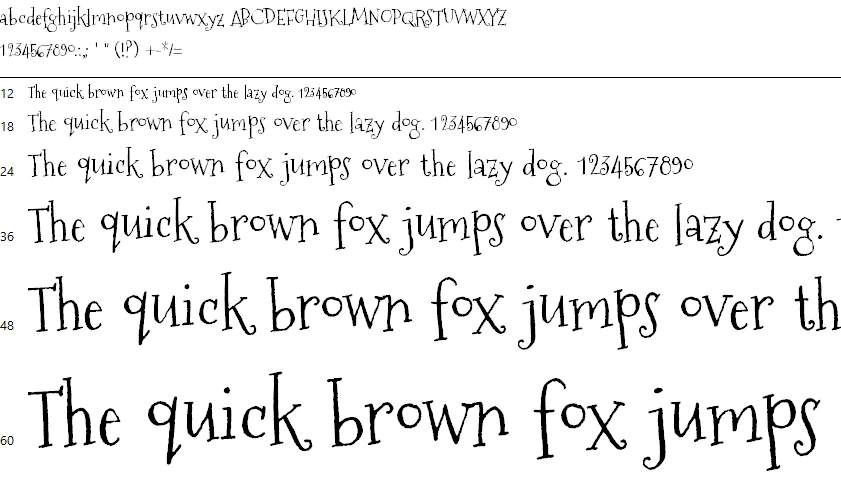 abcdefghijklmnopqrstuvwxyz ABCDEFGHIJKLMNOPQRSTUVWXYZ
1234567890.:,; ' " (!?) +-*/=
12 The quick brown fox jumps over the lazy dog. 1234567890
18 The quick brown fox jumps over the lazy dog. 1234567890
24 The quick brown fox jumps over the lazy dog. 1234567890
36 The quick brown fox jumps over the lazy dog.
48 The quick brown fox jumps over th
60 The quick brown fox jumps